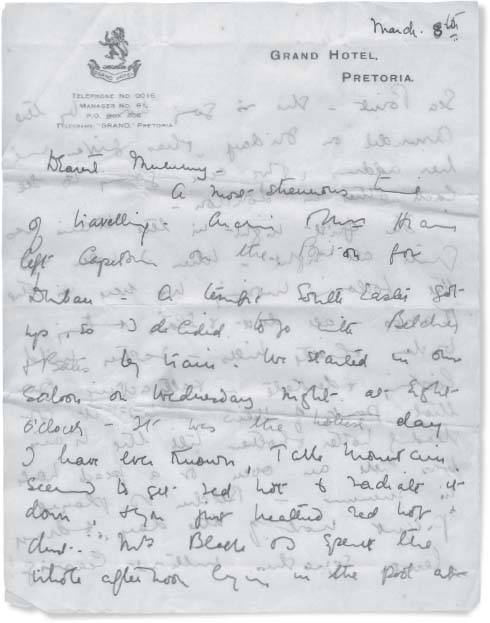 March. 8th
GRAND HOTEL
GRAND HOTEL,
PRETORIA.
TELEPHONE NO 0016
MANAGER NO. 61,
P.O. BOX
TELEGRAMS "GRAND," PRETORIA
Dearest Mummy –
A most strenuous time
of travelling. Archie
left Capetown on for
Durban – A terrific South Easter got
up, so I decided to go with Belcher
& Bates by train. We started in our
saloon on Wednesday night at eight
o'clock – It was the hottest day
I have ever known, Table Mountain
seemed to get red hot & radiate it
down, & you just breathed red hot
dust. Mrs Blake & I spent the
whole afternoon lying in the pool at